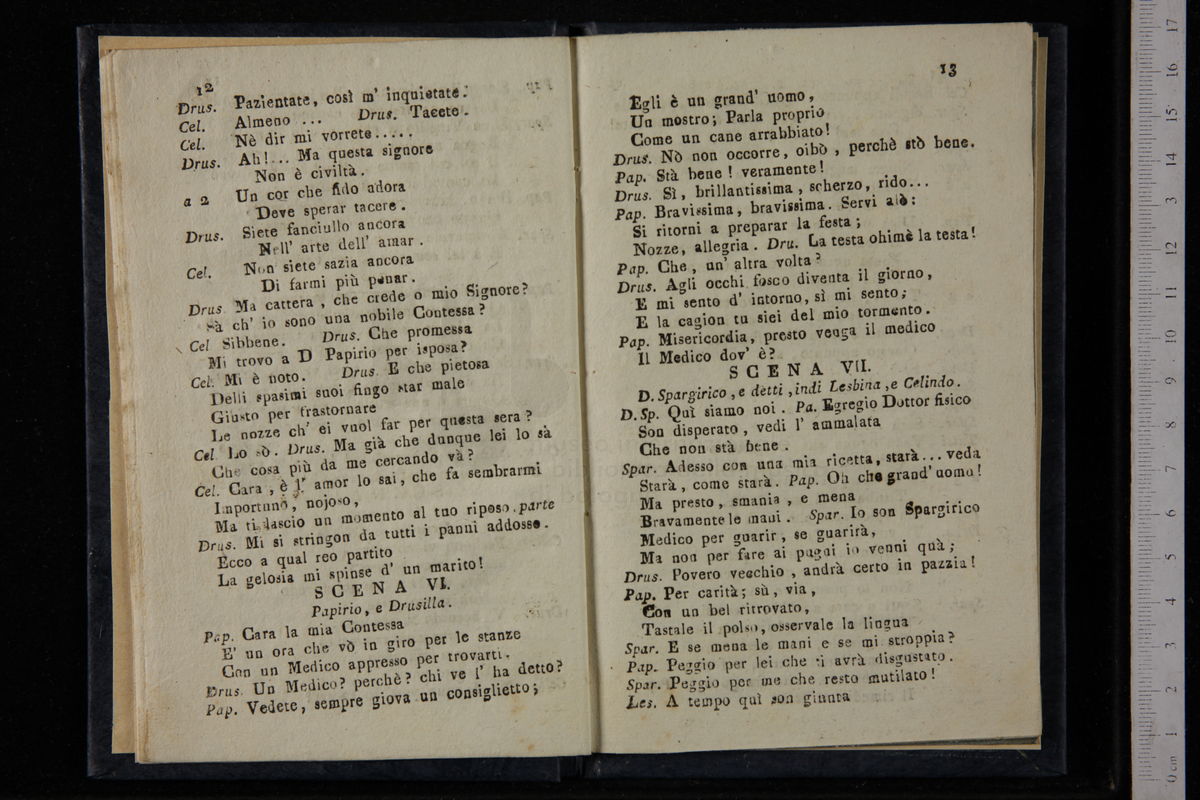 12
Drus. Pazientate, così m' inquietate.
Cel. Almeno ... Drus. Tacete.
Cel. Nè dir mi vorrete.....
Drus. Ah!... Ma questa signore
Non è civiltà.
a 2 Un cor che fido adora
Deve sperar tacere.
Drus. Siete fanciullo ancora
Nell' arte dell' amar.
Cel. Non siete sazia ancora
Di farmi più penar.
Drus Ma cattera, che crede o mio Signore?
Sà ch' io sono una nobile Contessa?
Cel Sibbene. Drus. Che promessa
Mi trovo a D Papirio per isposa?
Cel. Mi è noto. Drus. E che pietosa
Delli spasimi suoi fingo star male
Giusto per frastornare
Le nozze ch' ei vuol far per questa sera?
Cel Lo sò. Drus. Ma già che dunque lei lo sà
Che cosa più da me cercando và?
Cel. Cara, è l' amor lo sai, che fa sembrarmi
Importuno, nojoso,
Ma ti lascio un momento al tuo riposo. parte
Drus. Mi si stringon da tutti i panni addosso.
Ecco a qual reo partito
La gelosia mi spinse d' un marito!
SCENA VI.
Papirio, e Drusilla.
Pap. Cara la mia Contessa
E' un ora che vò in giro per le stanze
Con un Medico appresso per trovarti.
Drus. Un Medico? perchè? chi ve l' ha detto?
Pap. Vedete, sempre giova un consiglietto;
13
Egli è un grand' uomo,
Un mostro; Parla proprio
Come un cane arrabbiato!
Drus. Nò non occorre, oibò, perchè stò bene.
Pap. Stà bene! veramente!
Drus. Sì, brillantissima, scherzo, rido...
Pap. Bravissima, bravissima. Servi alò:
Si ritorni a preparar la festa;
Nozze, allegria. Dru. La testa ohimè la testa!
Pap. Che, un' altra volta?
Drus. Agli occhi fosco diventa il giorno,
E mi sento d' intorno, sì mi sento;
E la cagion tu siei del mio tormento.
Pap. Misericordia, presto venga il medico
Il Medico dov' è?
SCENA VII.
D. Spargirico, e detti, indi Lesbina, e Celindo.
D. Sp. Quì siamo noi. Pa. Egregio Dottor fisico
Son disperato, vedi l' ammalata
Che non stà bene.
Spar. Adesso con una mia ricetta, starà... veda
Starà, come starà. Pap. Oh che grand' uomo!
Ma presto, smania, e mena
Bravamente le mani. Spar. Io son Spargirico
Medico per guarir, se guarirà,
Ma non per fare ai pugni io venni quà;
Drus. Povero vecchio, andrà certo in pazzia!
Pap. Per carità; sù, via,
Con un bel ritrovato,
Tastale il polso, osservale la lingua
Spar. E se mena le mani e se mi stroppia?
Pap. Peggio per lei che ti avrà disgustato.
Spar. Peggio per me che resto mutilato!
Les. A tempo quì son giunta
17
16
15
14
13
12
11
10
9
8
7
6
5
4
3
2
1
0 cm